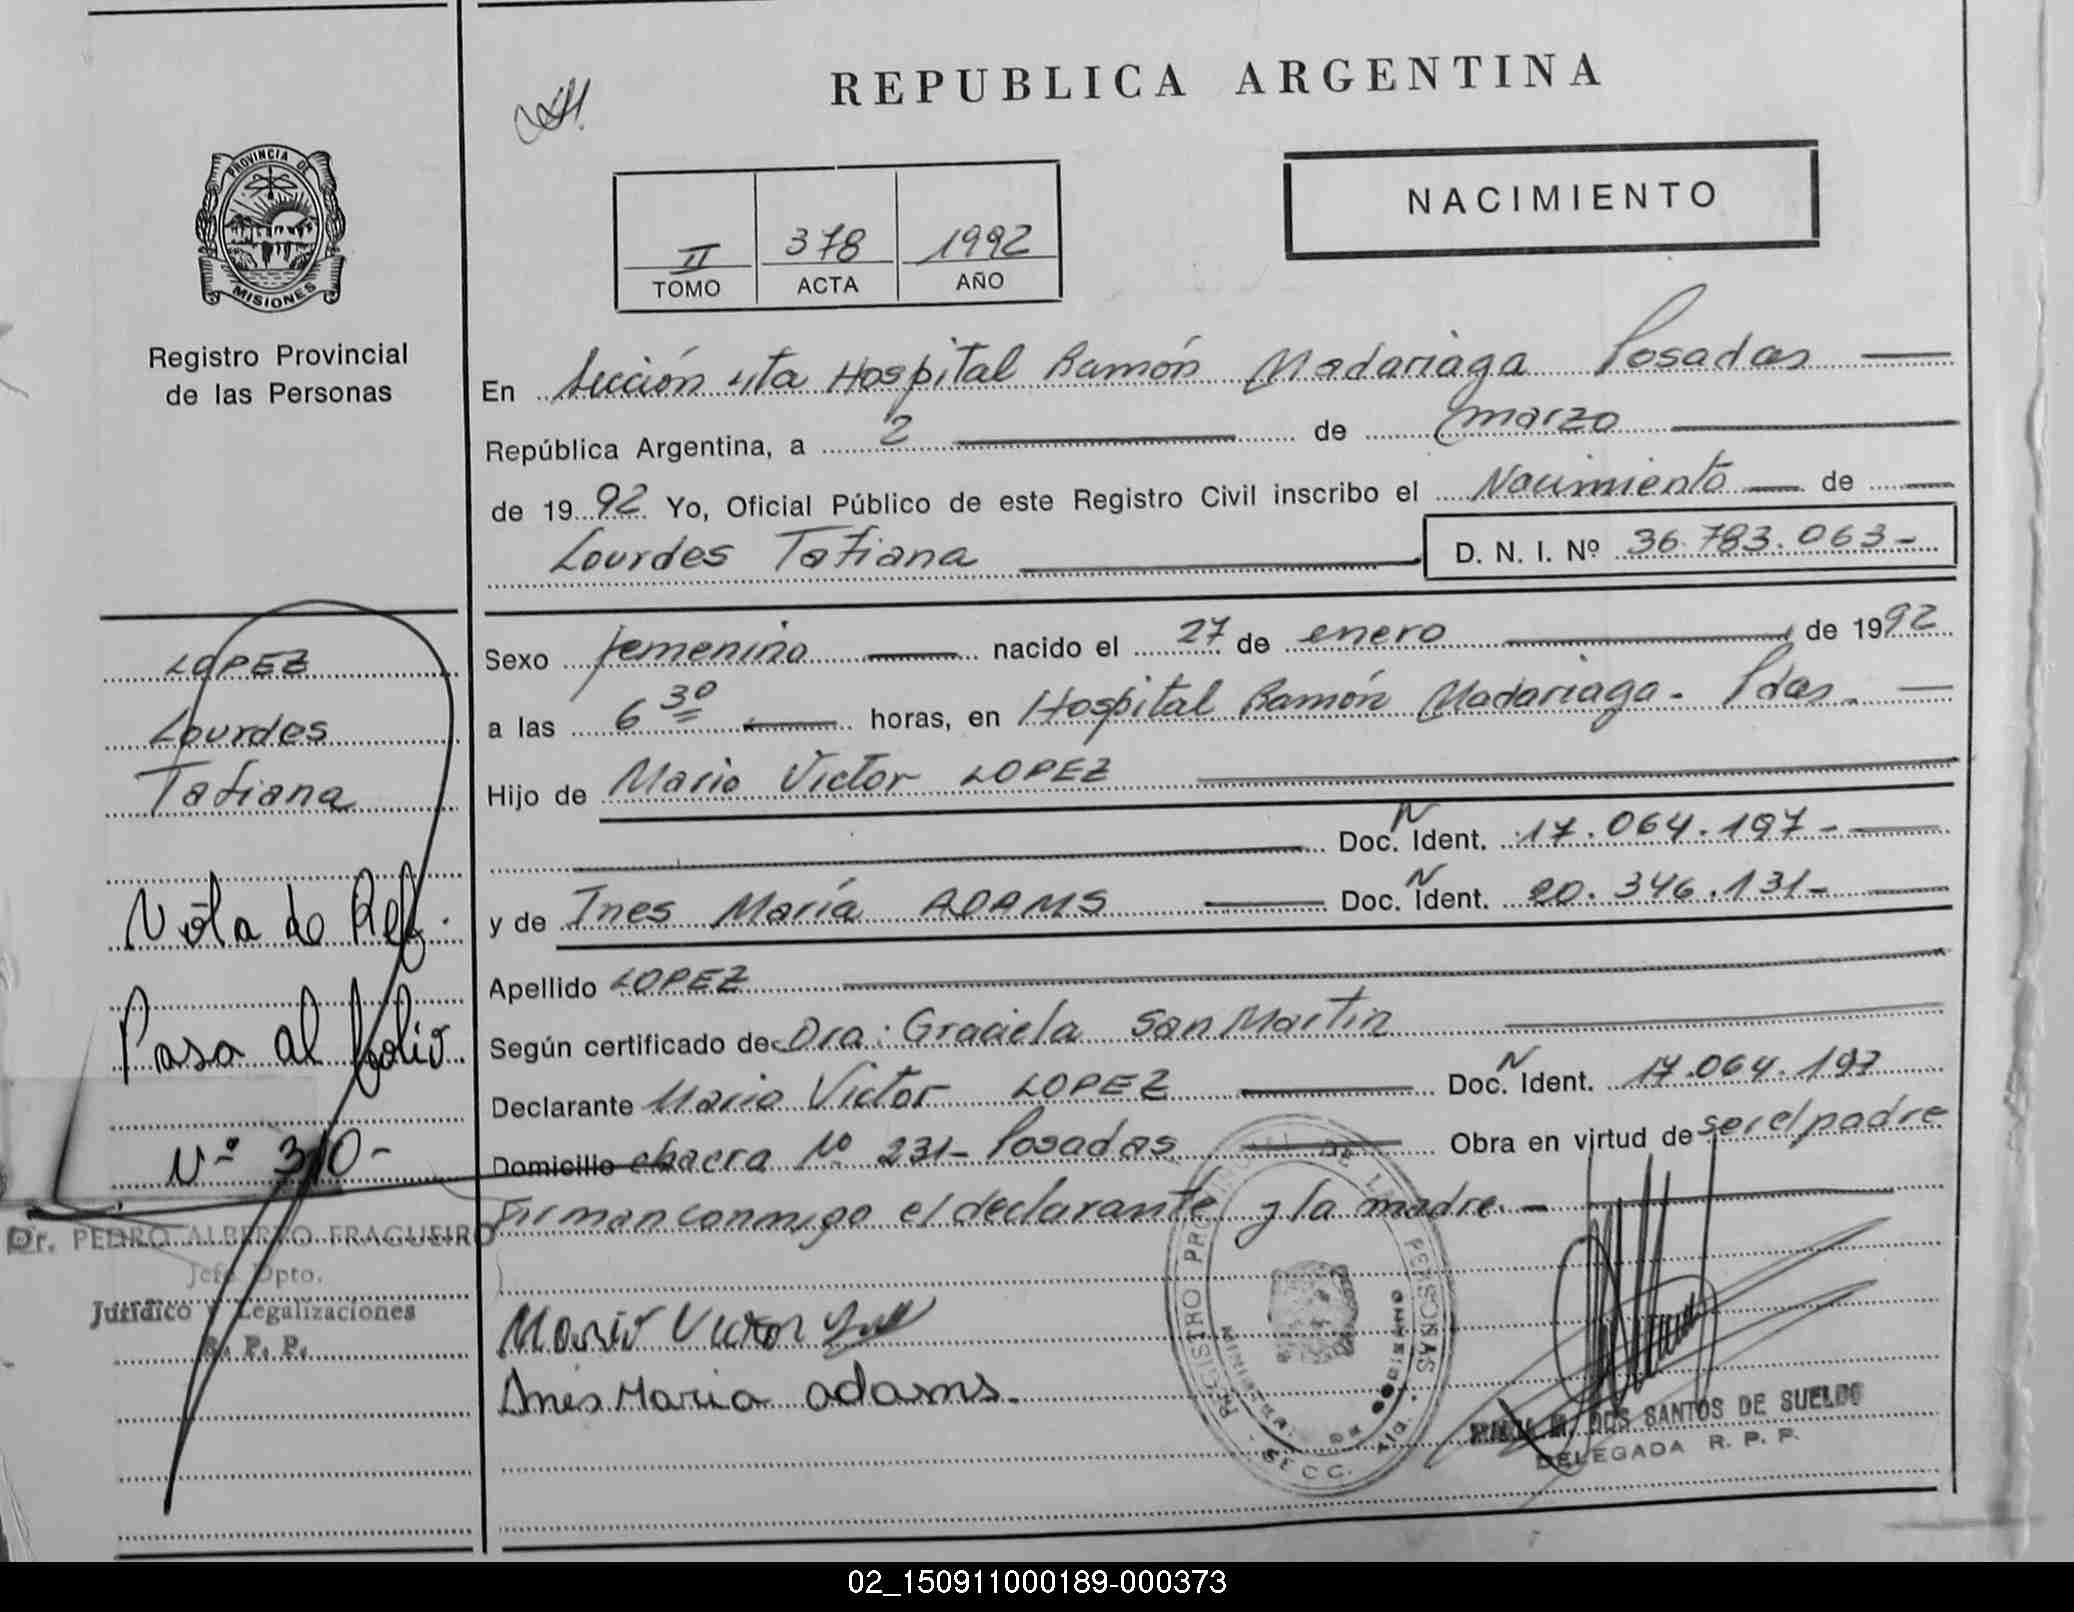 REPUBLICA ARGENTINA
NACIMIENTO
II 378 1992
TOMO ACTA AÑO
PROVINCIA DE
MISIONES
Registro Provincial
de las Personas
En Sección 4ta Hospital Ramón Madariaga Posadas
República Argentina, a 2 de marzo
de 1992 Yo, Oficial Público de este Registro Civil inscribo el Nacimiento de
Lourdes Tatiana D. N. I. Nº 36.783.063-
LOPEZ
Lourdes
Tatiana
Nota de Ref.
Pasa al folio
Nº 310-
Dr. PEDRO ALBERTO FRAGUEIRO
Jefe Dpto.
Jurídico y Legalizaciones
R. P. P.
Sexo femenino nacido el 27 de enero de 1992
a las 6 30 horas, en Hospital Ramón Madariaga - Pdas.
Hijo de Mario Victor LOPEZ
Doc. N Ident. 17.064.197-
y de Ines María ADAMS Doc. N Ident. 20.346.131-
Apellido LOPEZ
Según certificado de Dra: Graciela San Martin
Declarante Mario Victor LOPEZ Doc. N Ident. 17.064.197
Domicilio chacra Nº 231- Posadas Obra en virtud de ser el padre
Firman conmigo el declarante y la madre.-
Mario Victor
Ines Maria adams.
REGISTRO PROVINCIAL DE LAS PERSONAS
SECC.
M. DOS SANTOS DE SUELDO
DELEGADA R. P. P.
02_150911000189-000373